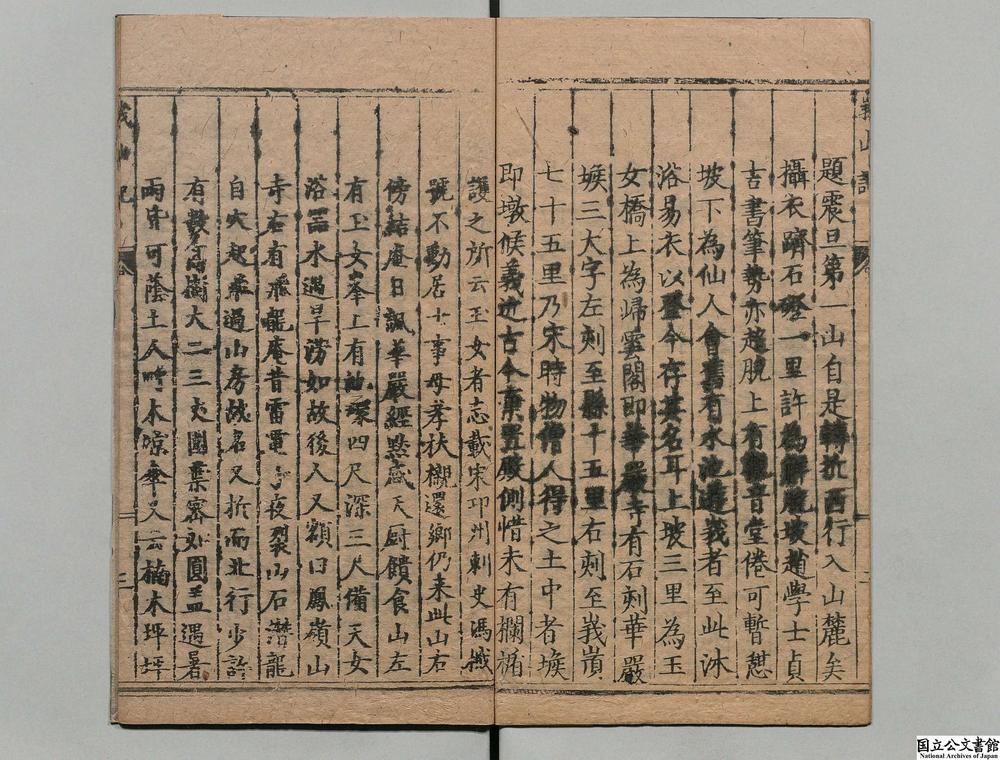 題震旦第一山自是轉折西行入山麓矣
攝衣躋石磴一里許為解脫坡趙學士貞
吉書筆勢亦趙脫上有觀音堂倦可暫憇
坡下為仙人會舊有水池遊峩者至此沐
浴易衣以登今存其名耳上坡三里為玉
女橋上為歸雲閣即華嚴寺有石刻華嚴
堠三大字左刻至縣十五里右刻至峩嵿
七十五里乃宋時物僧人得之土中者堠
即墩候義近古今棄置殿側惜未有欄楯
護之所云玉女者志載宋卭州刺史馮楫
號不動居士事母孝扶櫬還鄉仍来此山右
傍結庵日諷華嚴經㸃感天厨饋食山左
有玉女峯上有池環四尺深三人備天女
浴器水遇旱澇如故後人又額曰鳳嶺山
寺右有飛龍庵昔雷電夜裂山石潛龍
自穴起飛過山房故名又折而北行少許
有數喬樹大二三丈圍葉密如圓盖遇暑
雨皆可蔭土人呼木凉傘又云楠木坪坪
峩山記
二
国立公文書館
National Archives of Japan